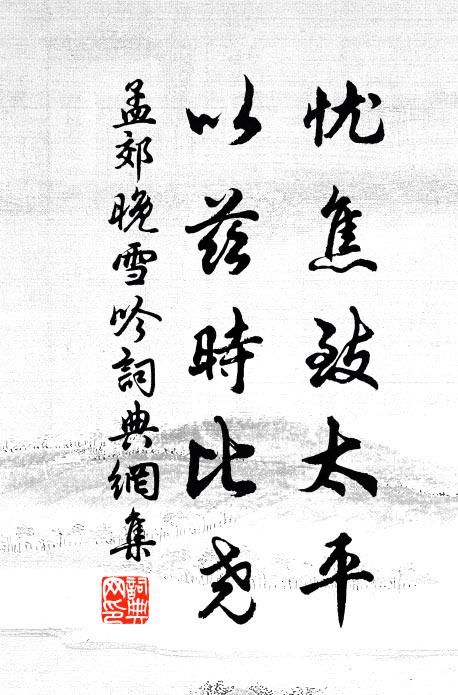 忧焦致太平
以兹時比尧
孟郊晚雪吟詞典網集
詞典网印